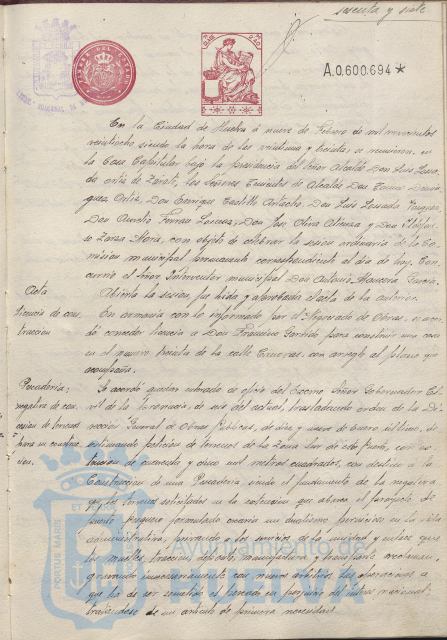 sesenta y siete
TIMBRE DEL ESTADO
A.0.600.694*
En la Ciudad de Huelva á nueve de Febrero de mil novecientos
veintiocho siendo la hora de las veintiuna y treinta se reunieron, en
la Casa Capitular bajo la presidencia del Señor Alcalde Don Luis
de Ortiz de Zárate, los Señores Tenientes de Alcalde Don
Don Enrique Castillo Don Luis Losada
Don Aurelio Don José Oliva Atienza y Don
so Zarza Mora, con objeto de celebrar la sesión ordinaria de la Co-
misión municipal Permanente correspondiente al día de hoy. Con-
currió el Señor Interventor municipal Don Antonio García.
Acta
Abierta la sesión, fue leída y aprobada el acta de la anterior.
licencia de cons
trucción
En armonía con lo informado por el Negociado de Obras, se acor-
dó conceder licencia a Don Francisco Garrido para construir una casa
en el número treinta de la calle con arreglo al plano que
acompaña.
Pescadería:
negativa de con
cesión de terrenos
para su construc
ción.
Se acordó quedar enterado de oficio del Excmo Señor Gobernador Ci-
vil de la Provincia, de seis del actual, trasladando orden de la Di-
rección General de Obras Públicas, de diez y nueve de Enero último, de-
sestimando petición de terrenos de la Zona Sur de este Puerto, con ex-
tensión de cuarenta y cinco mil metros cuadrados, con destino a la
Construcción de una Pescadería siendo el fundamento de la negativa
que los terrenos solicitados en la extensión que abarca el proyecto de
puerto pesquero formulado crearía un dualismo pernicioso en la vida
administrativa, privando a los servicios de la unidad y enlace que
los muelles, tracción, depósito, manipulación y transporte reclaman,
gravando innecesariamente con nuevos arbitrios las operaciones a
que ha de ser sometido el pescado en perjuicio del interés nacional,
tratándose de un artículo de primera necesidad.
PORTUS MARIS ET TERRAE
Ayuntamiento de
HUELVA